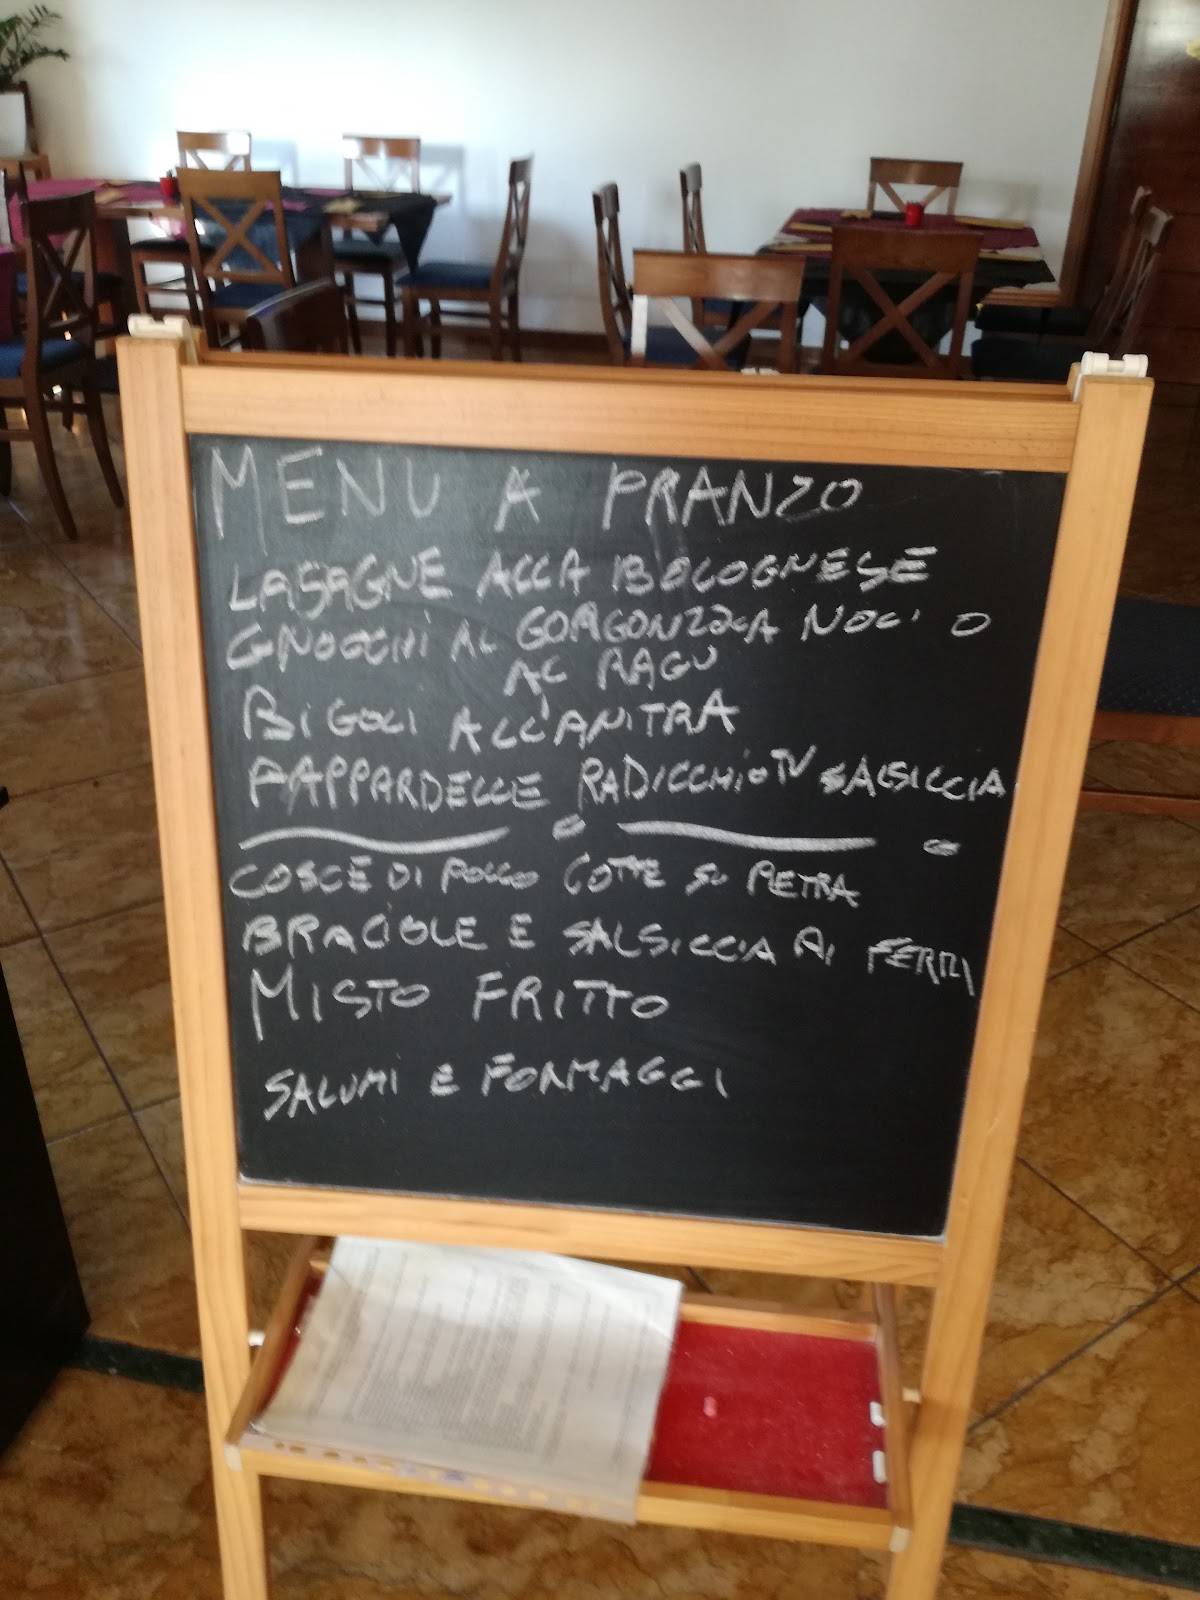 MENU A PRANZO
LASAGNE ALLA BOLOGNESE
GNOCCHI AL GORGONZOLA NOCI O
AL RAGU
BIGOLI ALL'ANITRA
PAPPARDELLE RADICCHIO TV SALSICCIA
COSCE DI POLLO COTTE SU PIETRA
BRACIOLE E SALSICCIA AI FERRI
MISTO FRITTO
SALUMI E FORMAGGI